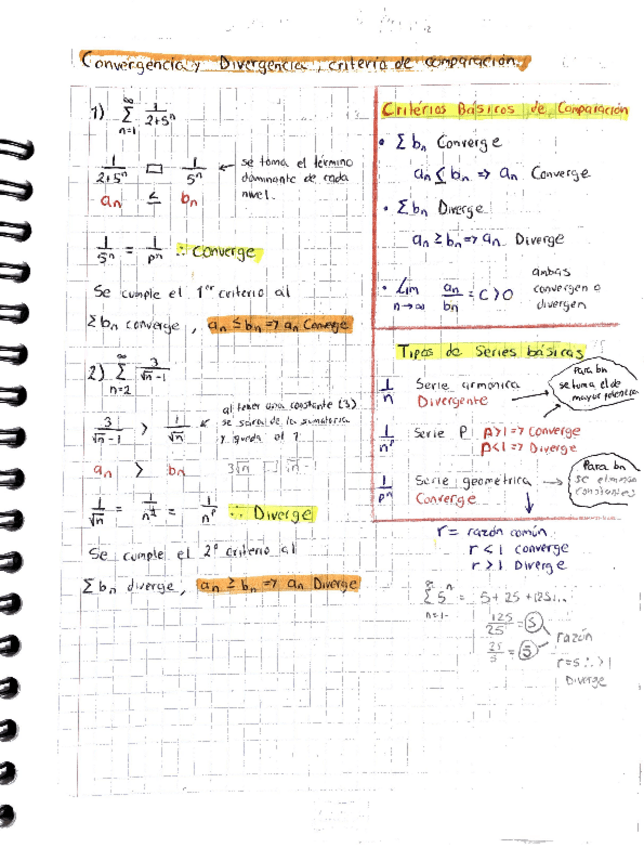 Convergencia y Divergencia, criterio de comparación.
1) ∞ Σ n=1 1/(2+5ⁿ)
1/(2+5ⁿ) □ 1/5ⁿ ← se toma el término
dominante de cada
nivel.
an ≤ bn
1/5ⁿ = 1/pⁿ ∴ Converge
Se cumple el 1er criterio al
Σbn converge, an ≤ bn => an Converge
2) ∞ Σ n=2 3/(√n -1)
3/(√n -1) > 1/√n
al tener una constante (3)
se saca de la sumatoria
y queda el 1
an > bn
3√n √n -
1/√n = 1/n^½ = 1/nᵖ ∴ Diverge
Se cumple el 2º criterio al
Σbn diverge, an ≥ bn => an Diverge
Critérios Básicos de Comparación
• Σbn Converge
an ≤ bn => an Converge
• Σbn Diverge
an ≥ bn => an Diverge
• Lim n→∞ an/bn = C > 0
ambas
convergen o
divergen
Tipos de Series básicas
1/n Serie armonica
Divergente
Para bn
se toma el de
mayor potencia
1/nᵖ Serie P P>1 => Converge
P<1 => Diverge
1/pⁿ Serie geometrica
Converge
Para bn
se eliminan
constantes
r = razón común
r < 1 converge
r > 1 Diverge
∞ Σ n=1 5ⁿ = 5 + 25 + 125...
125/25 = 5
25/5 = 5
razón
r=5 ∴ >1
Diverge